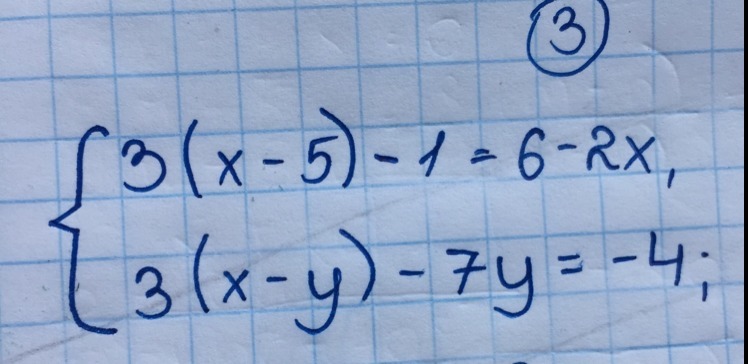 3
3(x-5)-1=6-2x,
3(x-y)-7y=-4;